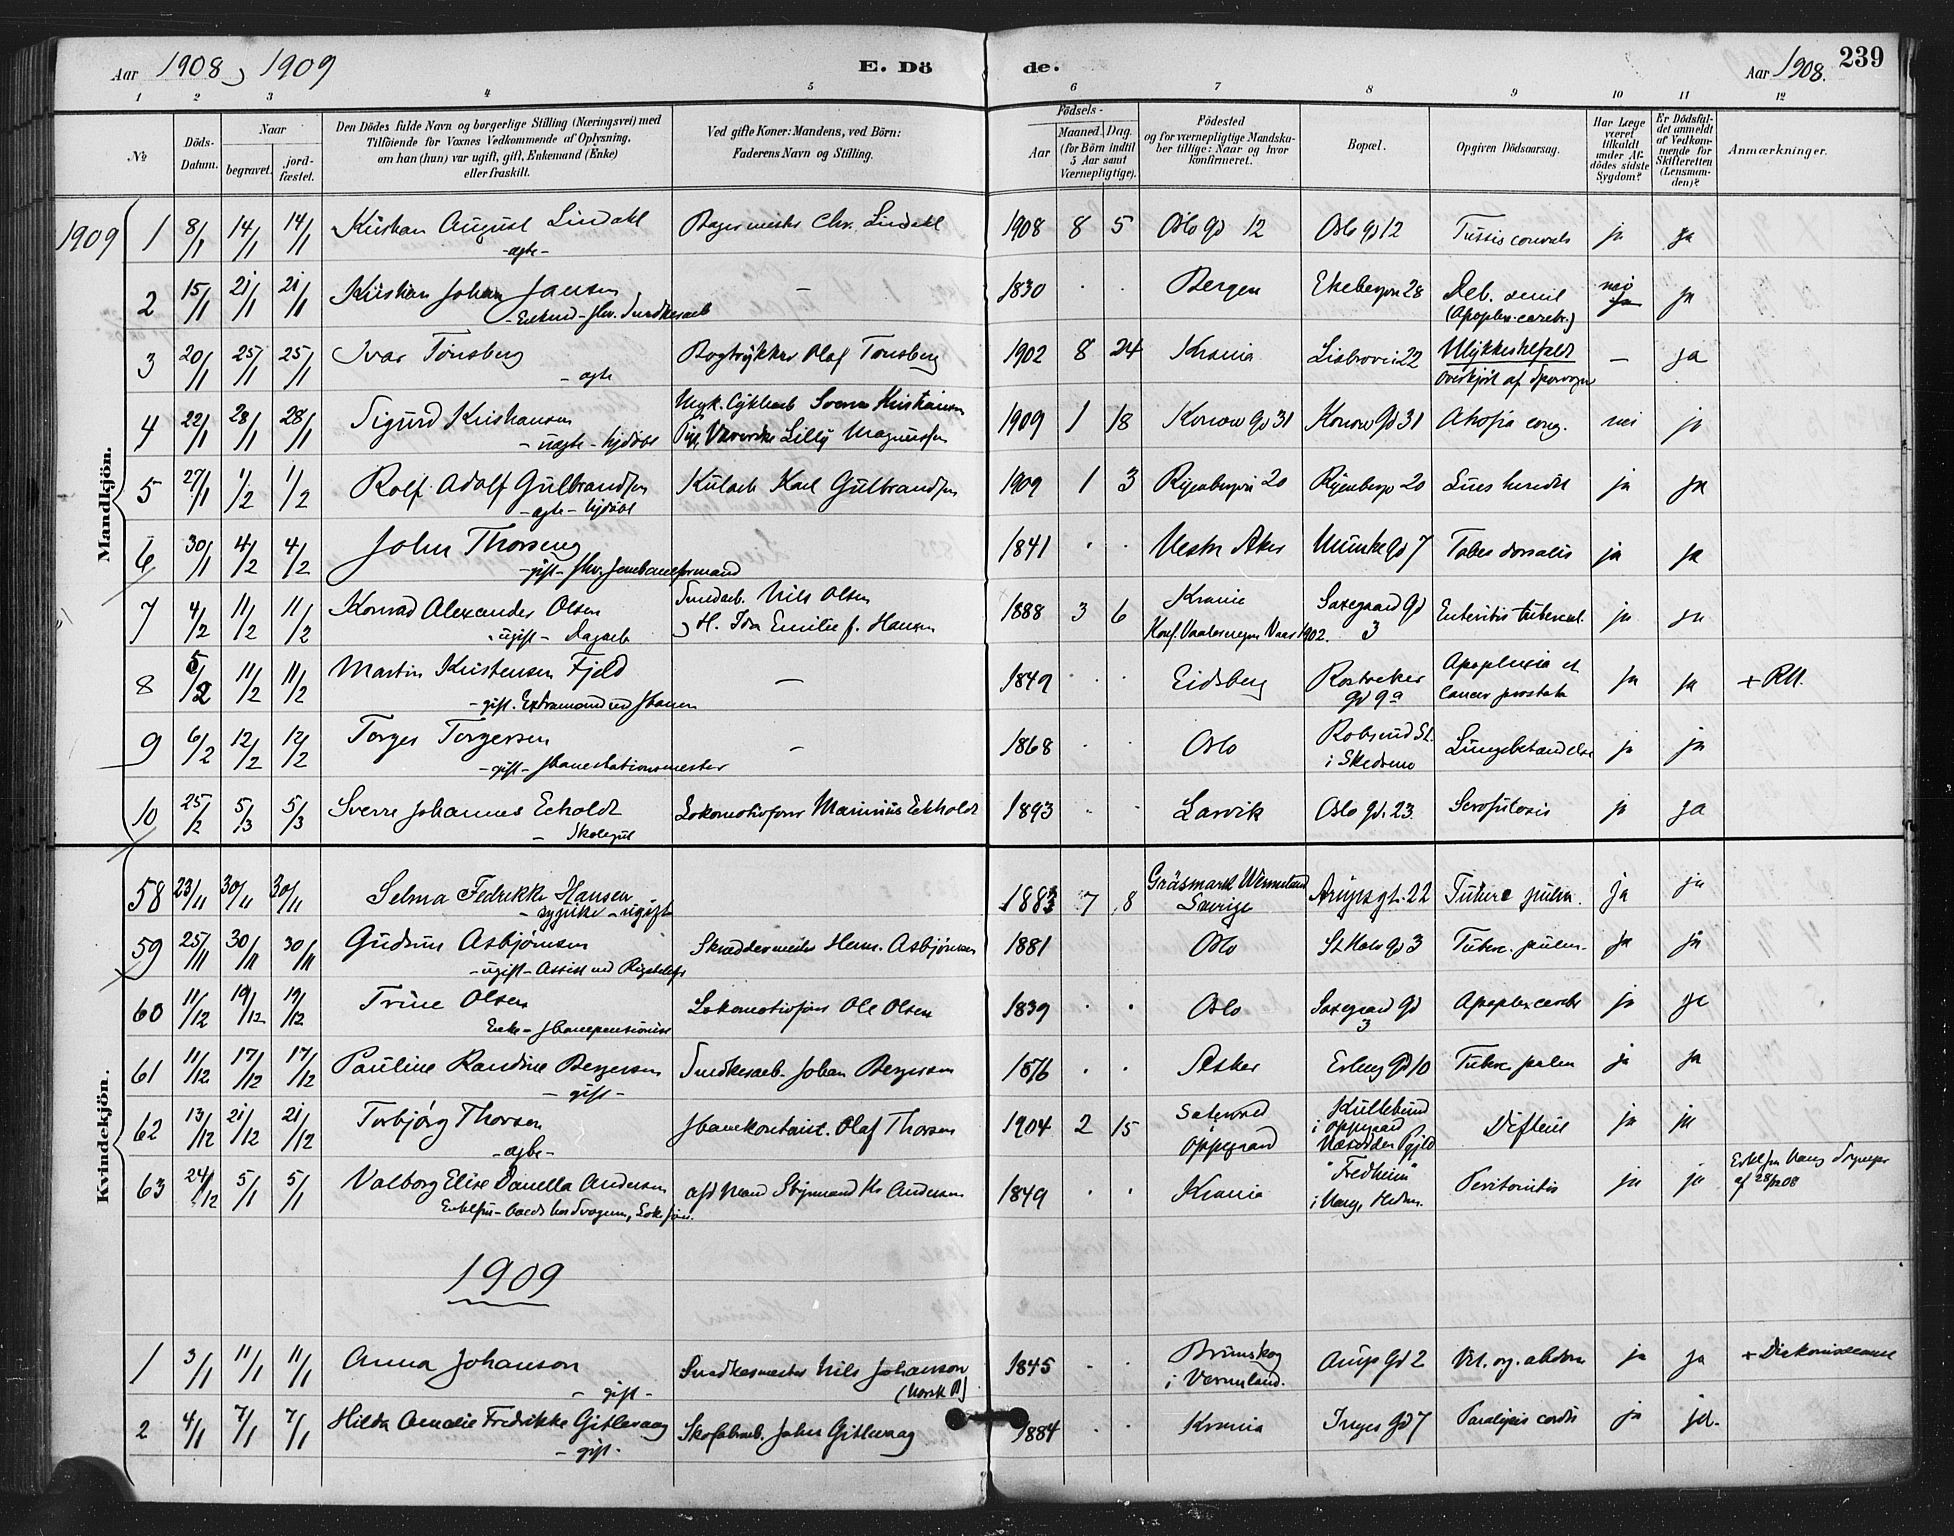 Aar 1908, 1909
E. Dö
de.
Aar 1908.
239
1 2 3 4 5 6 7 8 9 10 11 12
No
Döds-Datum.
Naar
begravet.
jordfæstet.
Den Dödes fulde Navn og borgerlige Stilling (Næringsvei) med
Tilföiende for Voxnes Vedkommende af Oplysning,
om han (hun) var ugift, gift, Enkemand (Enke)
eller fraskilt.
Ved gifte Koner: Mandens, ved Börn:
Faderens Navn og Stilling.
Födsels-
Aar
Maaned. Dag.
(for Börn indtil
5 Aar samt
Værnepligtige).
Födested
og for værnepligtige Mandskaber
tillige: Naar og hvor
konfirmeret.
Bopæl.
Opgiven Dödsaarsag.
Har Læge
været
tilkaldt
under Afdödes
sidste
Sygdom?
Er Dödsfaldet
anmeldt
af Vedkommende
for
Skifteretten
(Lensmanden)?
Anmærkninger.
Mandkjön.
1909
1 8/1 14/1 14/1 Kristian August Lindahl Bagermester Chr. Lindahl 1908 8 5 Oslo gd 12 Oslo gd 12 Tussis convuls ja ja
-ægte-
2 15/1 21/1 21/1 Kristian Johan Jansen — 1830 Bergen Ekebergvn 28 Deb. senil nei ja
(Apoplex. cerebr.)
3 20/1 25/1 25/1 Ivar Tønsberg Bogtrykker Olaf Tønsberg 1902 8 24 Krania 22 Ulykkestilfælde — ja
- ægte
Overkjørt af Sporvogn
4 22/1 28/1 28/1 Sigurd Kristiansen Sverre Kristiansen 1909 1 18 Konow gd 31 Konow gd 31 Atrofia cong. nei ja
- uægte - hjdøbt Lilly Magnussen
5 27/1 1/2 1/2 Rolf Adolf Gulbrandsen Karl Gulbrandsen 1909 1 3 Ryenbergvn 20 Ryenbergv 20 Lues heredit ja ja
- ægte - hjdøbt
6 30/1 4/2 4/2 John Thorseng 1841 Vestre Aker Munke gd 7 Tabes dorsalis ja ja
-gift-
7 4/2 11/2 11/2 Konrad Alexander Olsen Smedarb. Nils Olsen 1888 3 6 Krania Saxegaard gd 3 Enteritis tubercul. ja ja
- ugift - Dagarb
H. Ida Emilie f. Hansen
Konf. Vaalerengen Vaar 1902.
8 5/2 11/2 11/2 Martin Kristensen Fjeld — 1849 Eidsberg Rostocker gd 9a Apoplexia et ja ja + RH.
-gift. Extramand ved Jbanen
cancer prostata
9 6/2 12/2 12/2 Torger Torgersen — 1868 Oslo Robsrud St. i Skedsmo Lungebetændelse ja ja
-gift- Jbanestationsmester
10 25/2 5/3 5/3 Sverre Johannes Eckholdt Lokomotivfører Marinius Eckholdt 1893 Larvik Oslo gd. 23. Scrofulosis ja ja
- Skolegut
Kvindekjön.
58 23/11 30/11 30/11 Selma Fedrikke Hansen 1883 7 8 Gräsmark Wermland Sverige Arupsgt. 22 Tuberc pulm. ja ja
- sypike - ugift
59 25/11 30/11 30/11 Gudrun Asbjørnsen Skræddermester Herm. Asbjørnsen 1881 Oslo St Halv gd 3 Tuberc. pulm. ja ja
-ugift- Assist ved Rigstelef
60 11/12 19/12 19/12 Trine Olsen Lokomotivfører Ole Olsen 1839 Oslo Saxegaard gd 3 Apoplex cerebr ja ja
Enke - Jbanepensionist
61 11/12 17/12 17/12 Pauline Randine Bergersen Smedkesarb. Johan Bergersen 1876 Asker Erling gd 10 Tuberc pulm ja ja
- gift -
62 13/12 21/12 21/12 Torbjørg Thorsen Jbanekontorist. Olaf Thorsen 1904 2 15 Oppegaard Kullebund i Oppegaard Difteri ja ja
-ægte-
63 24/12 5/1 5/1 Valborg Elise Danella Andersen Styrmand Kr Andersen 1849 Krania "Fredheim" i Vang, Hedm. Peritonitis ja ja
af 28/12 08
1909
1 3/1 11/1 11/1 Anna Johanson Snedkermester Nils Johanson 1845 Brunskog i Vermland. Arup gd 2 Vit. org. abdom ja ja + Diakonissehuset
- gift -
(Norsk B)
2 4/1 7/1 7/1 Hilda Amalie Fredrikke Gitlevaag Skofabarb. John Gitlevaag 1884 Krania Inges gd 7 Paralysis cordis ja ja.
- gift -